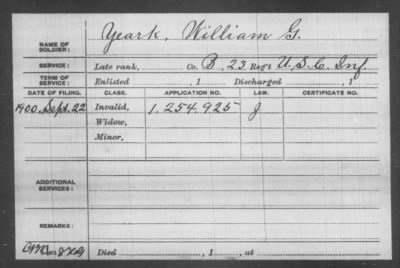 NAME OF SOLDIER: Yeark, William G.
SERVICE: Late rank, Co. B, 23 Reg't U.S.C. Inf.
TERM OF SERVICE: Enlisted , 1 Discharged , 1
DATE OF FILING. CLASS. APPLICATION NO. LAW. CERTIFICATE NO.
1900 Sept. 22 Invalid, 1.254.925 J
Widow,
Minor,
ADDITIONAL SERVICES:
REMARKS:
Died , 1 , at